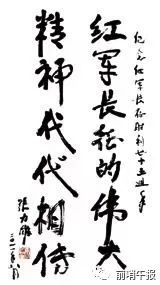 纪念红军长征胜利七十五周年
红军长征的伟大
精神代代相传
张力雄
二〇一一年
前哨午报